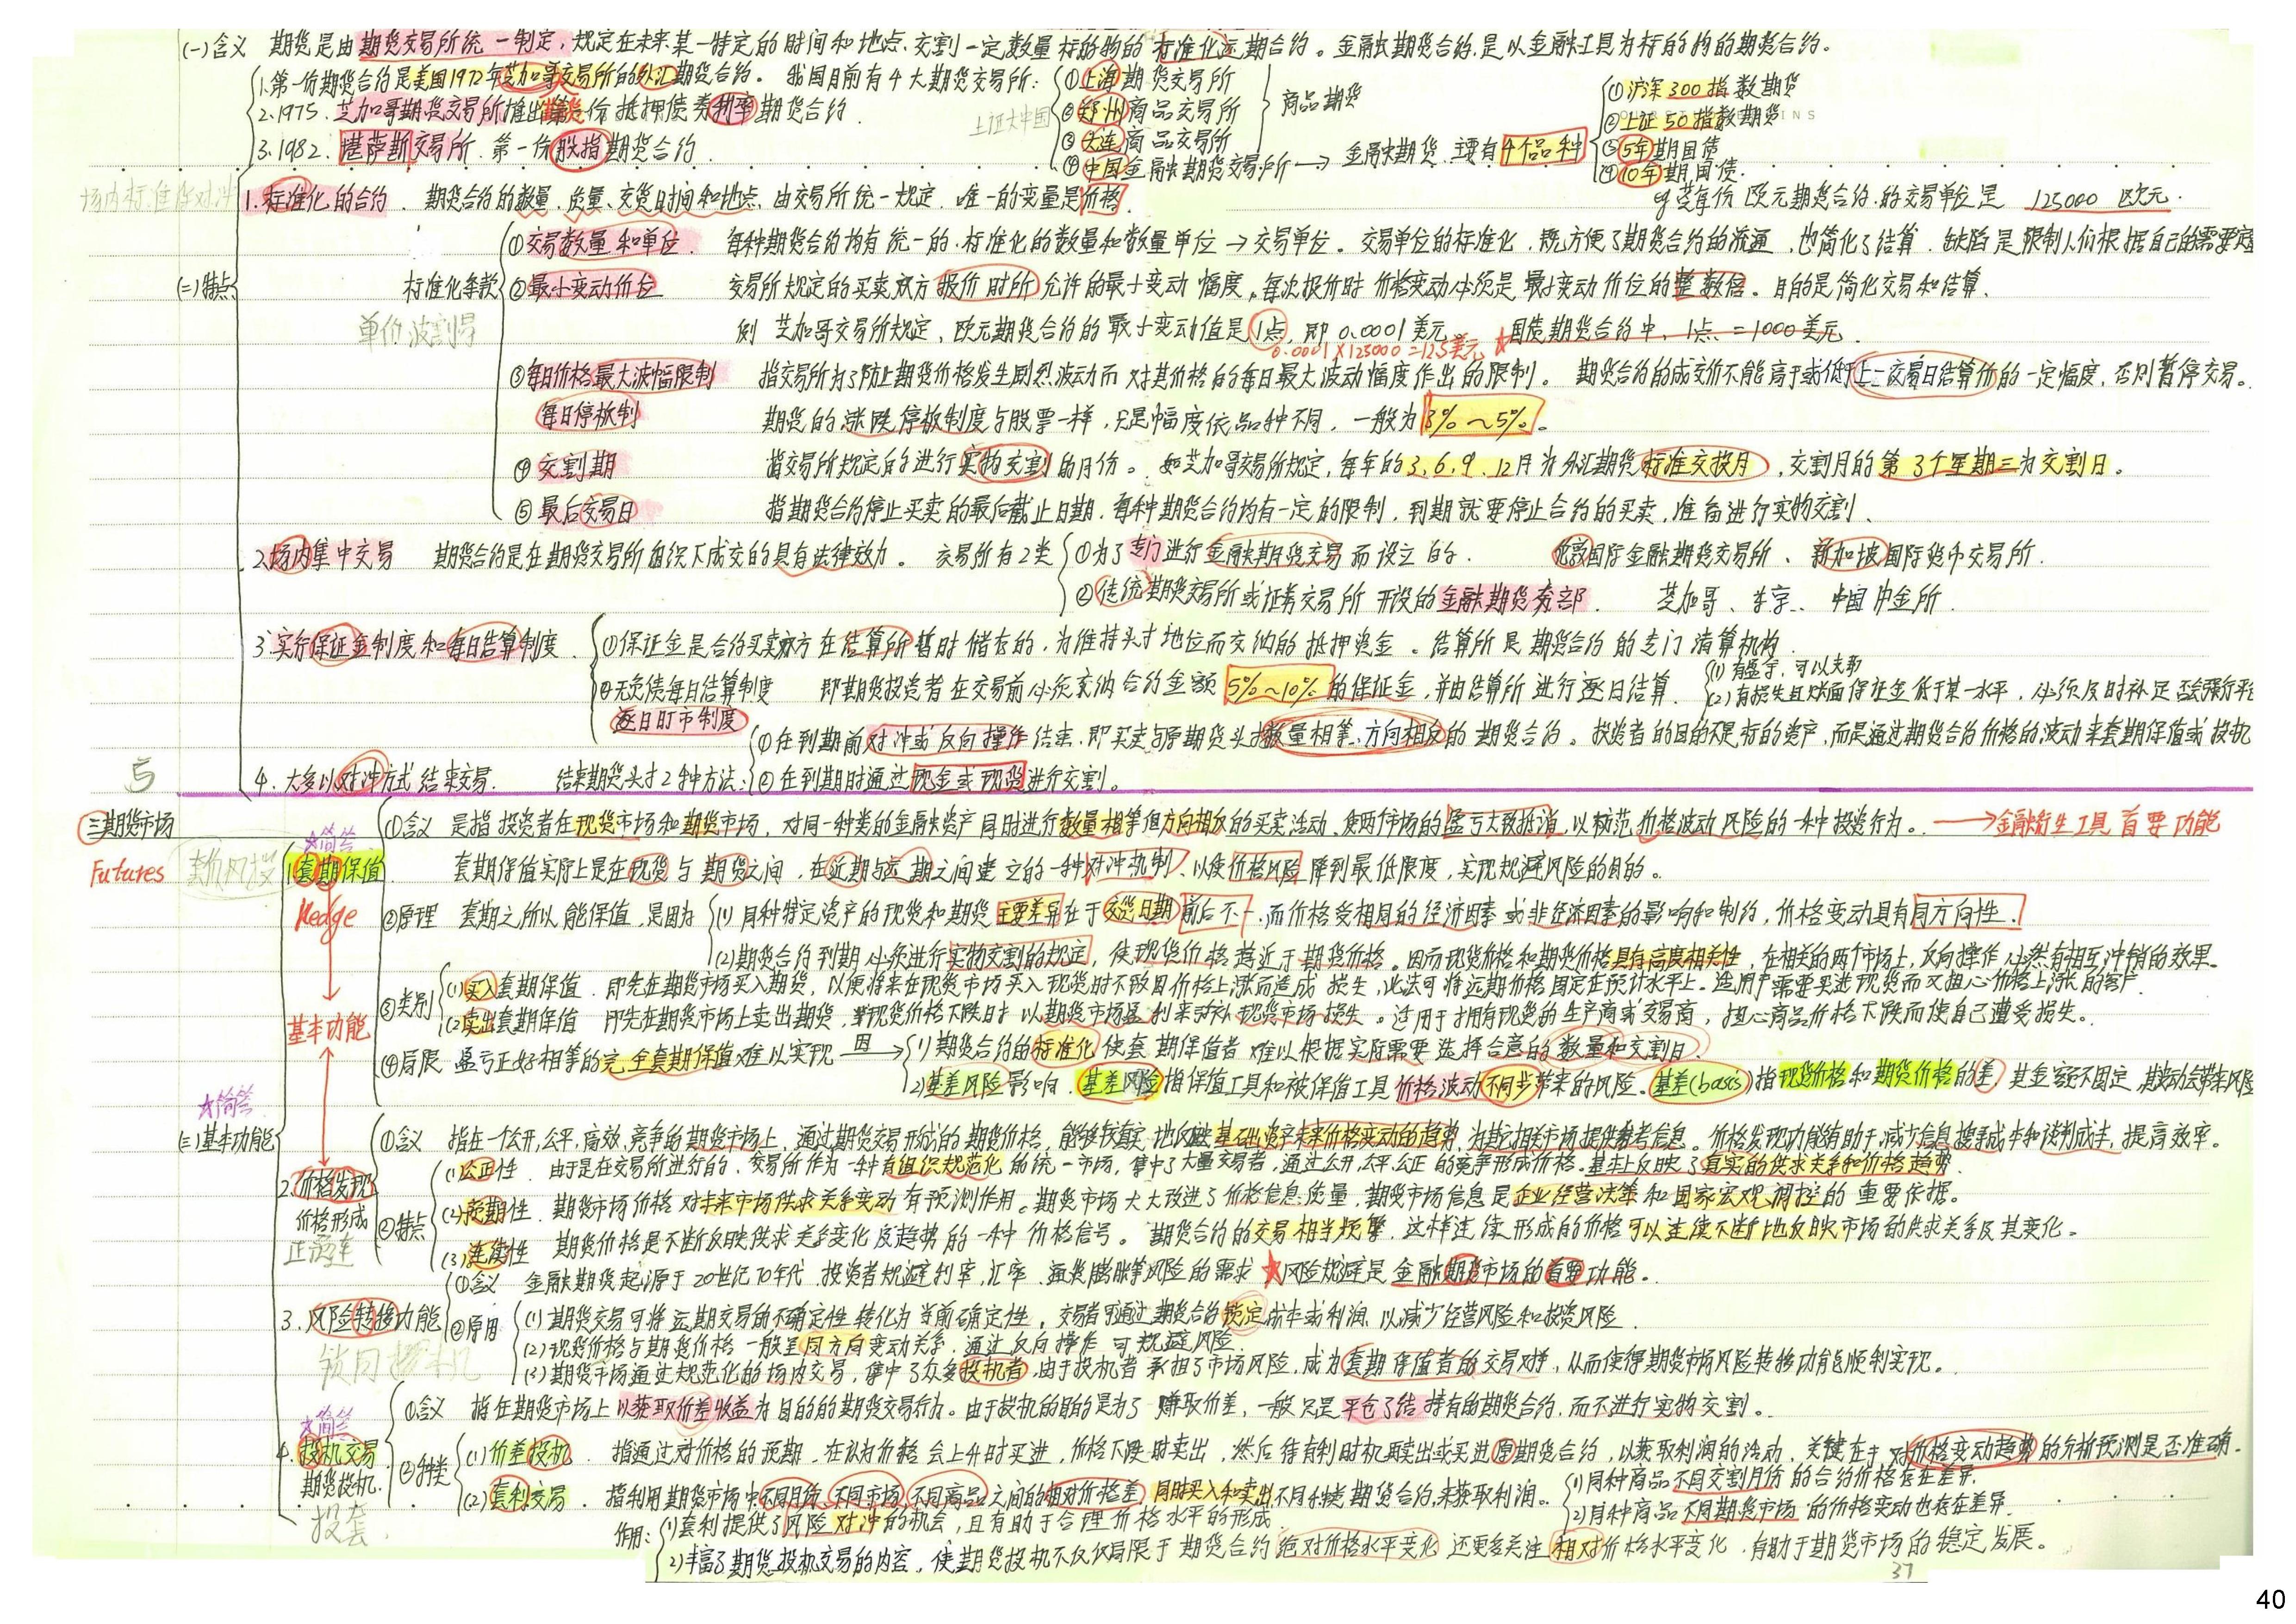 (一)含义 期货是由期货交易所统一制定,规定在未来某一特定的时间和地点、交割一定数量标的物的标准化远期合约。金融期货合约,是以金融工具为标的物的期货合约。
1.第一份期货合约是美国1972年芝加哥交易所的外汇期货合约。 我国目前有4大期货交易所: ①上海期货交易所
2.1975.芝加哥期货交易所推出第一份抵押债券利率期货合约. ②郑州商品交易所
3.1982.堪萨斯交易所.第一份股指期货合约. ③大连商品交易所
商品期货
上证大中国
④中国金融期货交易所→金融期货.主要有4个品种
①沪深300指数期货
②上证50指数期货
③5年期国债
④10年期国债.
(二)特点
场内标准保对冲
1.标准化的合约. 期货合约的数量、质量、交货时间和地点、由交易所统一规定.唯一的变量是价格.
eg 芝每份欧元期货合约的交易单位是 125000 欧元.
标准化条款
单价波割易
①交易数量和单位. 每种期货合约均有统一的.标准化的数量和数量单位→交易单位。交易单位的标准化.既方便了期货合约的流通.也简化了结算.缺陷是限制人们根据自己的需要
②最小变动价位 交易所规定的买卖双方报价时所允许的最小变动幅度。每次报价时价格变动必须是最小变动价位的整数倍。目的是简化交易和结算、
例 芝加哥交易所规定,欧元期货合约的最小变动值是1点,即0.0001美元 ★国债期货合约中、1点=1000美元.
0.0001×125000=12.5美元
③每日价格最大波幅限制 指交易所为了防止期货价格发生剧烈波动而对其价格的每日最大波动幅度作出的限制。 期货合约的成交价不能高于或低于上一交易日结算价的一定幅度,否则暂停交易。
每日停板制 期货的涨跌停板制度与股票一样,只是幅度依品种不同,一般为3%~5%。
④交割期 指交易所规定的进行实物交割的月份。如芝加哥交易所规定,每年的3.6.9.12月为外汇期货标准交割月,交割月的第3个星期三为交割日。
⑤最后交易日 指期货合约停止买卖的最后截止日期.每种期货合约均有一定的限制,到期就要停止合约的买卖,准备进行实物交割、
2.场内集中交易 期货合约是在期货交易所组织下成交的具有法律效力。 交易所有2类 ①为了专门进行金融期货交易而设立的. 伦敦国际金融期货交易所、新加坡国际货币交易所.
②传统期货交易所或证券交易所开设的金融期货交易部. 芝加哥、东京、中国中金所.
3.实行保证金制度和每日结算制度. ①保证金是合约买卖双方在结算所暂时储存的,为维持头寸地位而交纳的抵押资金。结算所是期货合约的专门清算机构.
②无负债每日结算制度 即期货投资者在交易前必须交纳合约金额5%~10%的保证金,并由结算所进行逐日结算. (1)有盈余,可以支取
逐日盯市制度 (2)有损失且账面保证金低于某一水平,必须及时补足否会强行平
4.大多以对冲方式结束交易. 结束期货头寸2种方法: ①在到期前对冲或反向操作结束.即买卖与原期货头寸数量相等、方向相反的期货合约。投资者的目的不是标的资产,而是通过期货合约价格的波动来套期保值或投机
②在到期时通过现金或现货进行交割。
5
三期货市场
Futures
(三)基本功能
☆简答
套价风投
☆简答
1.套期保值
Hedge
基本功能
①含义 是指投资者在现货市场和期货市场,对同一种类的金融资产同时进行数量相等但方向相反的买卖活动、使两个市场的盈亏大致抵消,以规范价格波动风险的一种投资行为。→金融衍生工具首要功能
套期保值实际上是在现货与期货之间,在近期与远期之间建立的一种对冲机制、以使价格风险降到最低限度,实现规避风险的目的。
②原理 套期之所以能保值,是因为 (1)同种特定资产的现货和期货主要差异在于交货日期前后不一.而价格受相同的经济因素或非经济因素的影响和制约,价格变动具有同方向性.
(2)期货合约到期必须进行实物交割的规定,使现货价格趋近于期货价格。因而现货价格和期货价格具有高度相关性.在相关的两个市场上,反向操作必然有相互冲销的效果。
③类别 (1)买入套期保值.即先在期货市场买入期货,以便将来在现货市场买入现货时不致因价格上涨而造成损失,此法可将远期价格固定在预计水平上。适用于需要买进现货而又担心价格上涨的客户.
(2)卖出套期保值 即先在期货市场上卖出期货.当现货价格下跌时以期货市场盈利来弥补现货市场损失。适用于拥有现货的生产商或交易商,担心商品价格下跌而使自己遭受损失。
④局限 盈亏正好相等的完全套期保值难以实现 因→ (1)期货合约的标准化使套期保值者难以根据实际需要选择合意的数量和交割日.
2)基差风险影响.基差风险指保值工具和被保值工具价格波动不同步带来的风险。基差(basis)指现货价格和期货价格的差,其金额不固定,其波动会带来风险
2.价格发现
价格形成
正预连
①含义 指在一个公开,公平,高效,竞争的期货市场上,通过期货交易形成的期货价格,能够较真实地反映基础资产未来价格变动的趋势,为其它相关市场提供参考信息。价格发现功能有助于减少信息搜寻成本和谈判成本,提高效率。
②特点 (1)公正性.由于是在交易所进行的.交易所作为一种有组织规范化的统一市场,集中了大量交易者,通过公开公平公正的竞争形成价格.基本上反映了真实的供求关系和价格趋势.
(2)预期性.期货市场价格对未来市场供求关系变动有预测作用。期货市场大大改进了价格信息质量,期货市场信息是企业经营决策和国家宏观调控的重要依据。
(3)连续性 期货价格是不断反映供求关系变化及趋势的一种价格信号。期货合约的交易相当频繁.这样连续形成的价格可以连续不断地反映市场的供求关系及其变化。
3.风险转移功能
①含义 金融期货起源于20世纪70年代.投资者规避利率,汇率.通货膨胀等风险的需求 ★风险规避是金融期货市场的首要功能。
②原因 (1)期货交易可将远期交易的不确定性转化为当前确定性。交易者可通过期货合约锁定成本或利润.以减少经营风险和投资风险.
(2)现货价格与期货价格一般呈同方向变动关系.通过反向操作可规避风险
(3)期货市场通过规范化的场内交易,集中了众多投机者.由于投机者承担了市场风险,成为套期保值者的交易对手,从而使得期货市场风险转移功能顺利实现。
锁同投机
☆简答
4.投机交易
期货投机.
投套
①含义 指在期货市场上以获取价差收益为目的的期货交易行为。由于投机的目的是为了赚取价差,一般只是平仓了结持有的期货合约.而不进行实物交割。
②种类 (1)价差投机. 指通过对价格的预期.在认为价格会上升时买进,价格下跌时卖出,然后待有利时机再卖出或买进原期货合约,以获取利润的活动.关键在于对价格变动趋势的分析预测是否准确.
(2)套利交易. 指利用期货市场中不同月份、不同市场、不同商品之间的相对价格差,同时买入和卖出不同种类期货合约,来获取利润。 (1)同种商品不同交割月份的合约价格存在差异.
(2)同种商品不同期货市场的价格变动也存在差异.
作用: (1)套利提供了风险对冲的机会,且有助于合理价格水平的形成.
2)丰富了期货投机交易的内容,使期货投机不仅仅局限于期货合约绝对价格水平变化还更多关注相对价格水平变化.有助于期货市场的稳定发展。
37
40